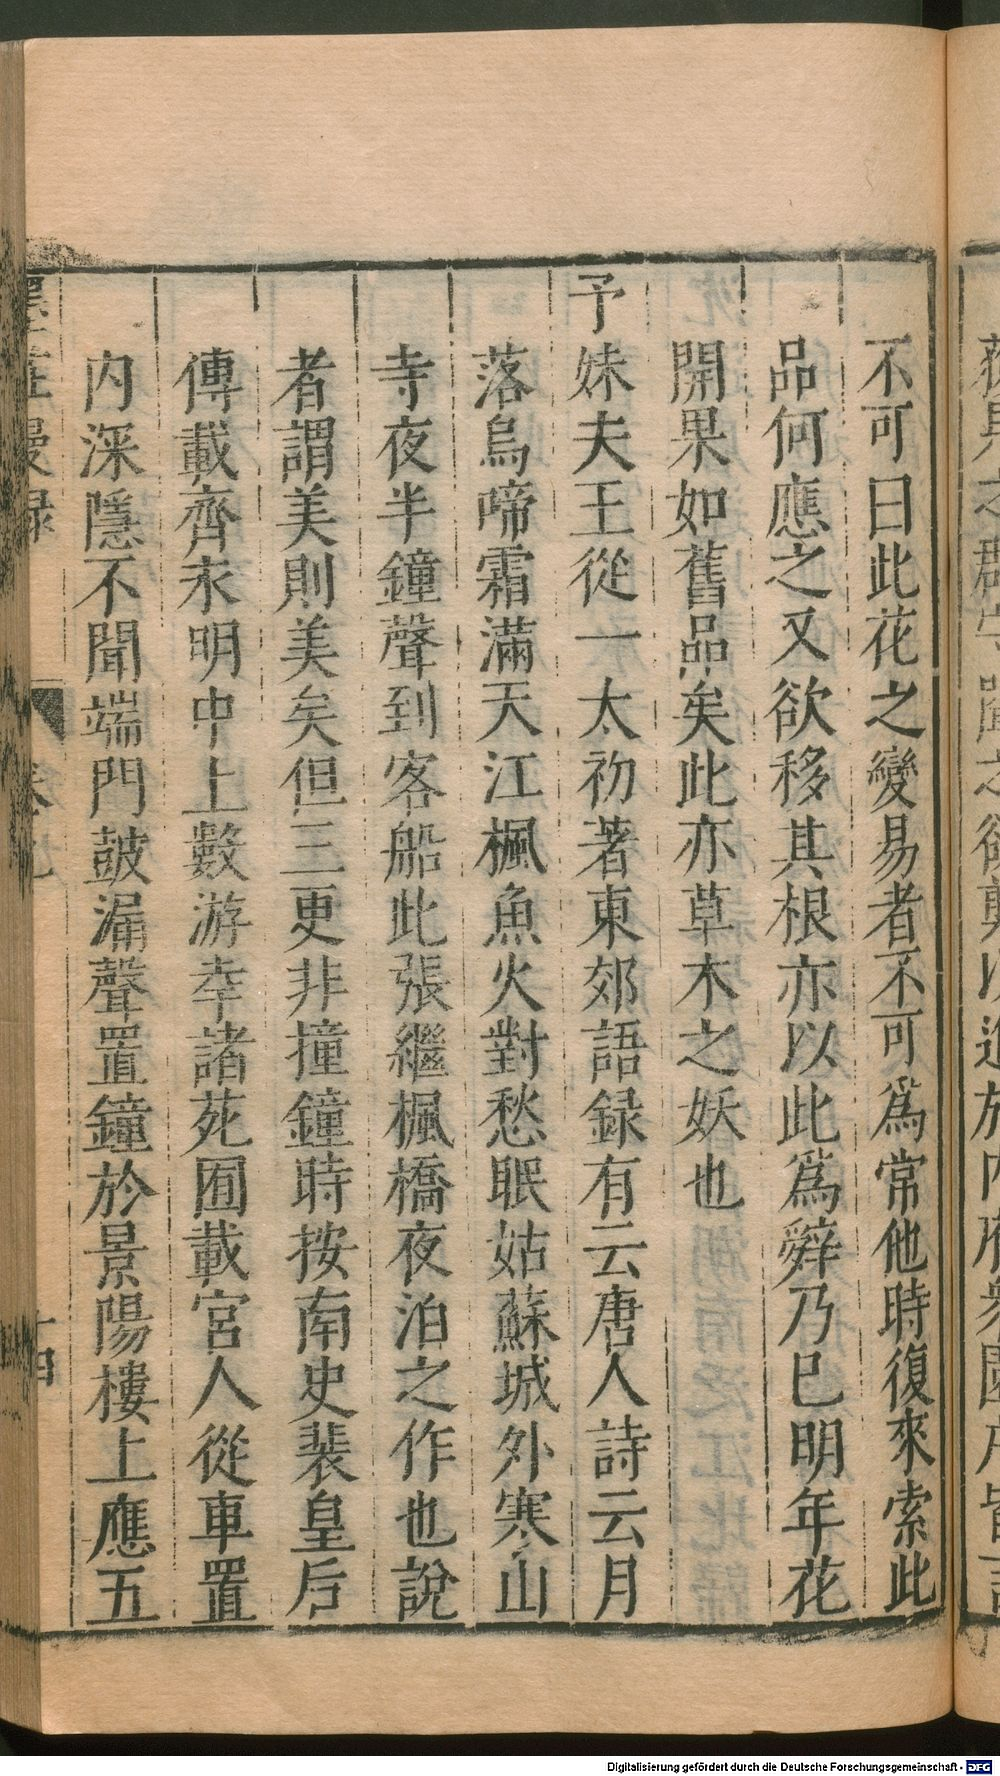 不可曰此花之變易者不可爲常他時復來索此
品何應之又欲移其根亦以此爲辤乃巳明年花
開果如舊品矣此亦草木之妖也
予妹夫王從一太初著東郊語録有云唐人詩云月
落烏啼霜滿天江楓魚火對愁眠姑蘇城外寒山
寺夜半鐘聲到客船此張繼楓橋夜泊之作也說
者謂美則美矣但三更非撞鐘時按南史裴皇后
傳載齊永明中上數游幸諸苑囿載宮人從車置
内深隱不聞端門鼓漏聲置鐘於景陽樓上應五
Digitalisierung gefördert durch die Deutsche Forschungsgemeinschaft - DFG